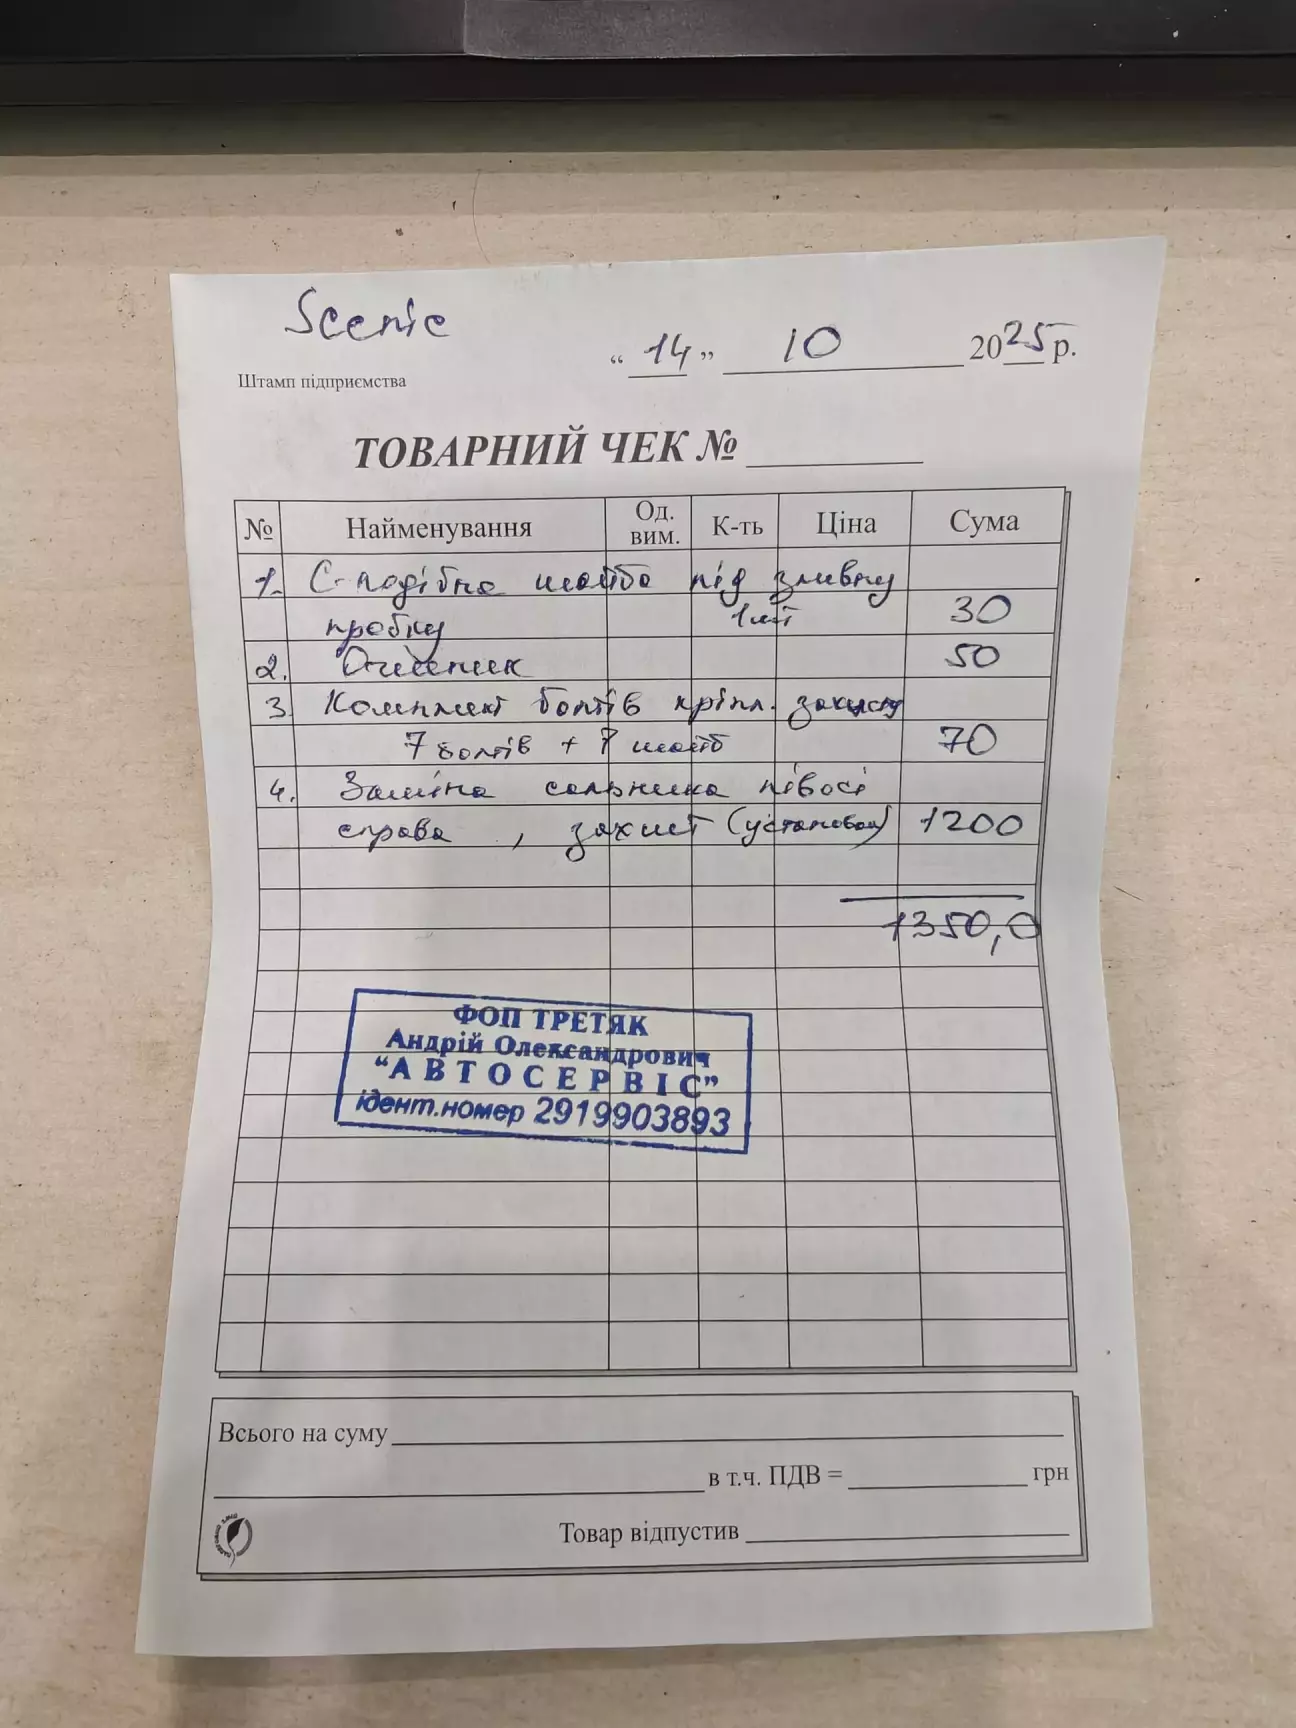 Scenic
“ 14 ” 10 2025 р.
Штамп підприємства
ТОВАРНИЙ ЧЕК №
№ Найменування Од. вим. К-ть Ціна Сума
1. С-подібна шайба під зливну
пробку 1шт 30
2. Очисник 50
3. Комплект болтів кріпл. захисту
7 болтів + 7 шайб 70
4. Заміна сальника півосі
справа, захист (установка) 1200
1350,0
ФОП ТРЕТЯК
Андрій Олександрович
“АВТОСЕРВІС”
ідент.номер 2919903893
Всього на суму
в т.ч. ПДВ = грн
Товар відпустив